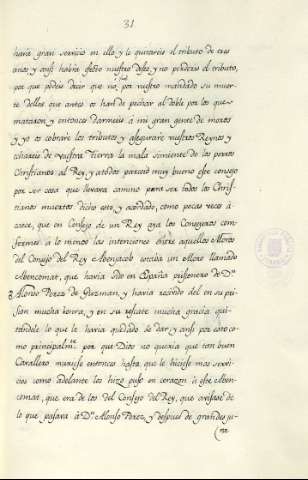 31
hará gran servicio en ello, y le quitareis el tributo de tres
años y assi habrá efecto vuestro deseo, y no perdereis el tributo,
por que podeis decir que no por vuestro mandado su muer-
te dellos que antes os han de pechar al doble por los que
mataron y entonces dareis à mi gran gente de moros
y yo os cobrare los tributos y asegurare vuestros Reynos y
echareis de vuestra Tierra la mala simiente de los perros
Christianos al Rey, y a todos pareció muy bueno este consejo
por ser cosa que llevava camino para ser todos los Chris-
tianos muertos dicho esto, y acordado, como pocas veces a-
caece, que en Consejo de un Rey aya los Consejeros con-
formes à lo menos las intenciones entre aquellos Moros
del Consejo del Rey Abenjacob estaba un Moro llamado
Abencomat, que havia sido en España prisionero de Dn
Alonso Perez de Guzman, y havia recivido del en su pri-
sion mucha honra, y en su rescate mucha gracia qui-
tandole lo que le havia quedado de dar, y assi por esto co-
mo principalmte. por que Dios no queria que tan buen
Cavallero muriese entonces hasta que le hiciese mas servi-
cios como adelante los hizo puso en corazon à este Aben-
comat, que era de los del Consejo del Rey, que avisase de
lo que pasava à Dn. Alonso Perez, y despues de grandes ju-